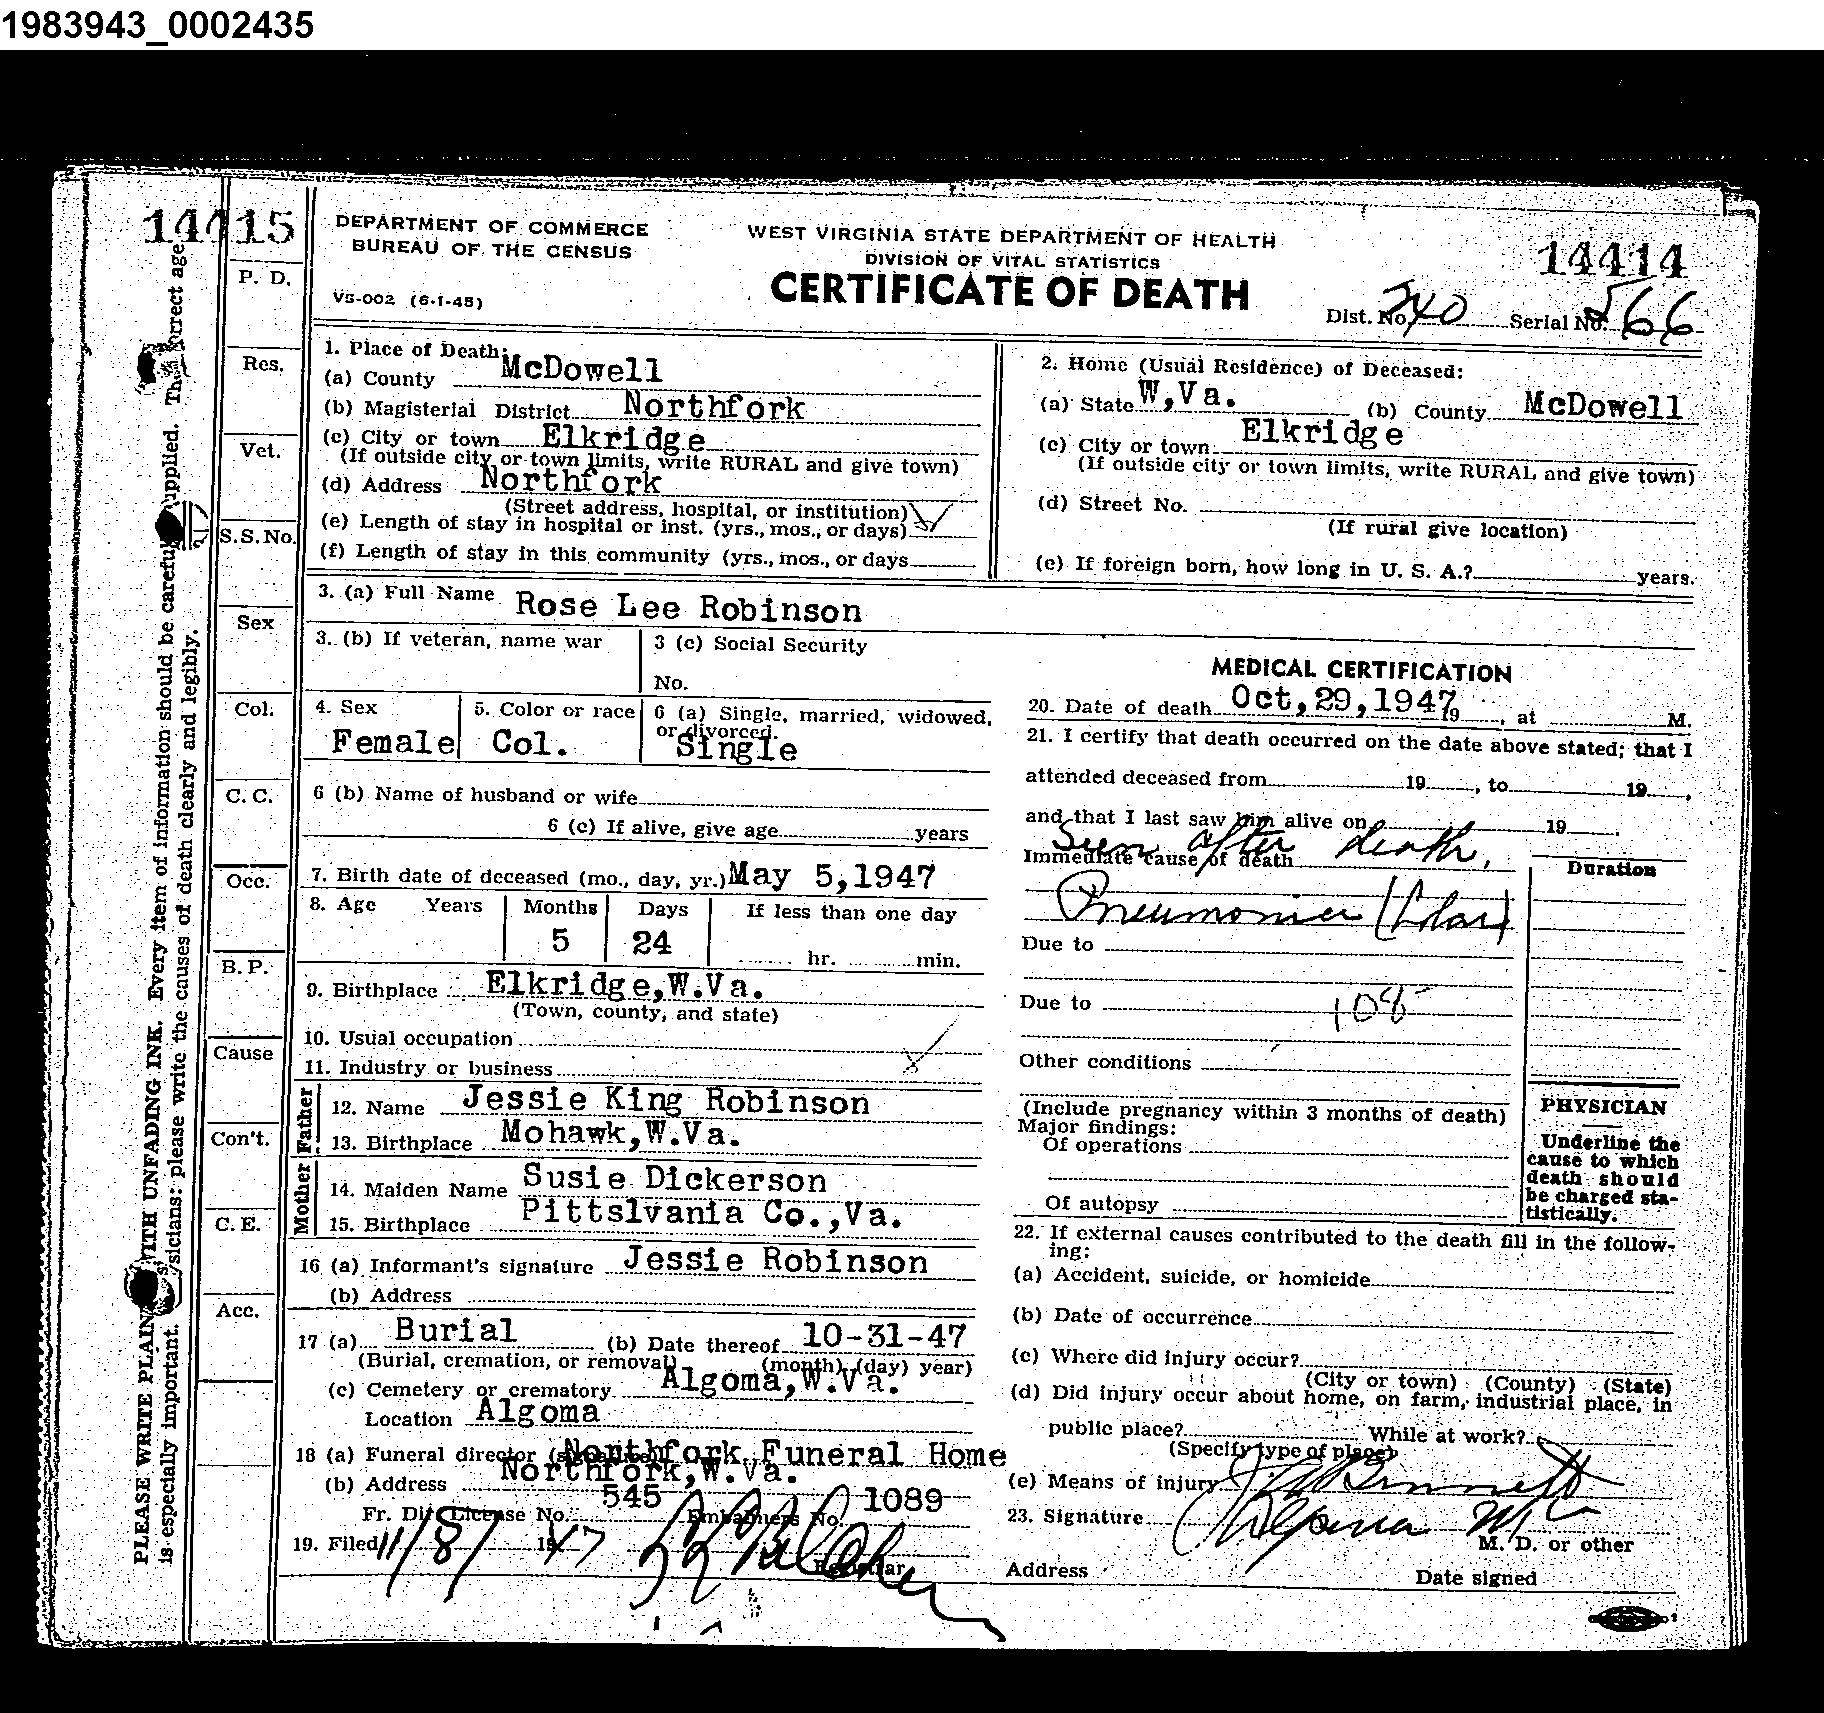 1983943_0002435
14415
DEPARTMENT OF COMMERCE
BUREAU OF THE CENSUS
VS-002 (6-1-45)
WEST VIRGINIA STATE DEPARTMENT OF HEALTH
DIVISION OF VITAL STATISTICS
CERTIFICATE OF DEATH
14414
Dist. No. 240 Serial No. 566
P. D.
Res.
Vet.
S.S.No.
Sex
Col.
C. C.
Occ.
B. P.
Cause
Con't.
C. E.
Acc.
PLEASE WRITE PLAIN WITH UNFADING INK. Every item of information should be carefu upplied. Th orrect age
is especially important. sicians: please write the causes of death clearly and legibly.
1. Place of Death:
(a) County McDowell
(b) Magisterial District Northfork
(c) City or town Elkridge
(If outside city or town limits, write RURAL and give town)
(d) Address Northfork
(Street address, hospital, or institution)
(e) Length of stay in hospital or inst. (yrs., mos., or days)
(f) Length of stay in this community (yrs., mos., or days
2. Home (Usual Residence) of Deceased:
(a) State W,Va. (b) County McDowell
(c) City or town Elkridge
(If outside city or town limits, write RURAL and give town)
(d) Street No.
(If rural give location)
(e) If foreign born, how long in U. S. A.? years.
3. (a) Full Name Rose Lee Robinson
3. (b) If veteran, name war
3 (c) Social Security
No.
4. Sex Female
5. Color or race Col.
6 (a) Single, married, widowed,
or divorced. Single
6 (b) Name of husband or wife
6 (c) If alive, give age years
7. Birth date of deceased (mo., day, yr.) May 5,1947
8. Age Years Months Days If less than one day
5 24 hr. min.
9. Birthplace Elkridge,W.Va.
(Town, county, and state)
10. Usual occupation
11. Industry or business
Father
12. Name Jessie King Robinson
13. Birthplace Mohawk,W.Va.
Mother
14. Maiden Name Susie Dickerson
15. Birthplace Pittslvania Co.,Va.
16 (a) Informant's signature Jessie Robinson
(b) Address
17 (a) Burial (b) Date thereof 10-31-47
(Burial, cremation, or removal) (month) (day) year)
(c) Cemetery or crematory Algoma,W.Va.
Location Algoma
18 (a) Funeral director (signature) Northfork Funeral Home
(b) Address Northfork,W.Va.
Fr. Dir. License No. 545 Embalmers No. 1089
19. Filed 11/8/ 1947
Registrar
MEDICAL CERTIFICATION
20. Date of death Oct,29,1947 19 , at M.
21. I certify that death occurred on the date above stated; that I
attended deceased from 19 , to 19 ,
and that I last saw him alive on 19 .
Seen after death.
Immediate cause of death
Duration
Pneumonia
Due to
Due to 108
Other conditions
(Include pregnancy within 3 months of death)
Major findings:
Of operations
Of autopsy
PHYSICIAN
Underline the
cause to which
death should
be charged sta-
tistically.
22. If external causes contributed to the death fill in the follow-
ing:
(a) Accident, suicide, or homicide
(b) Date of occurrence
(c) Where did injury occur?
(City or town) (County) (State)
(d) Did injury occur about home, on farm, industrial place, in
public place? While at work?
(Specify type of place)
(e) Means of injury
23. Signature
M. D. or other
Address Date signed